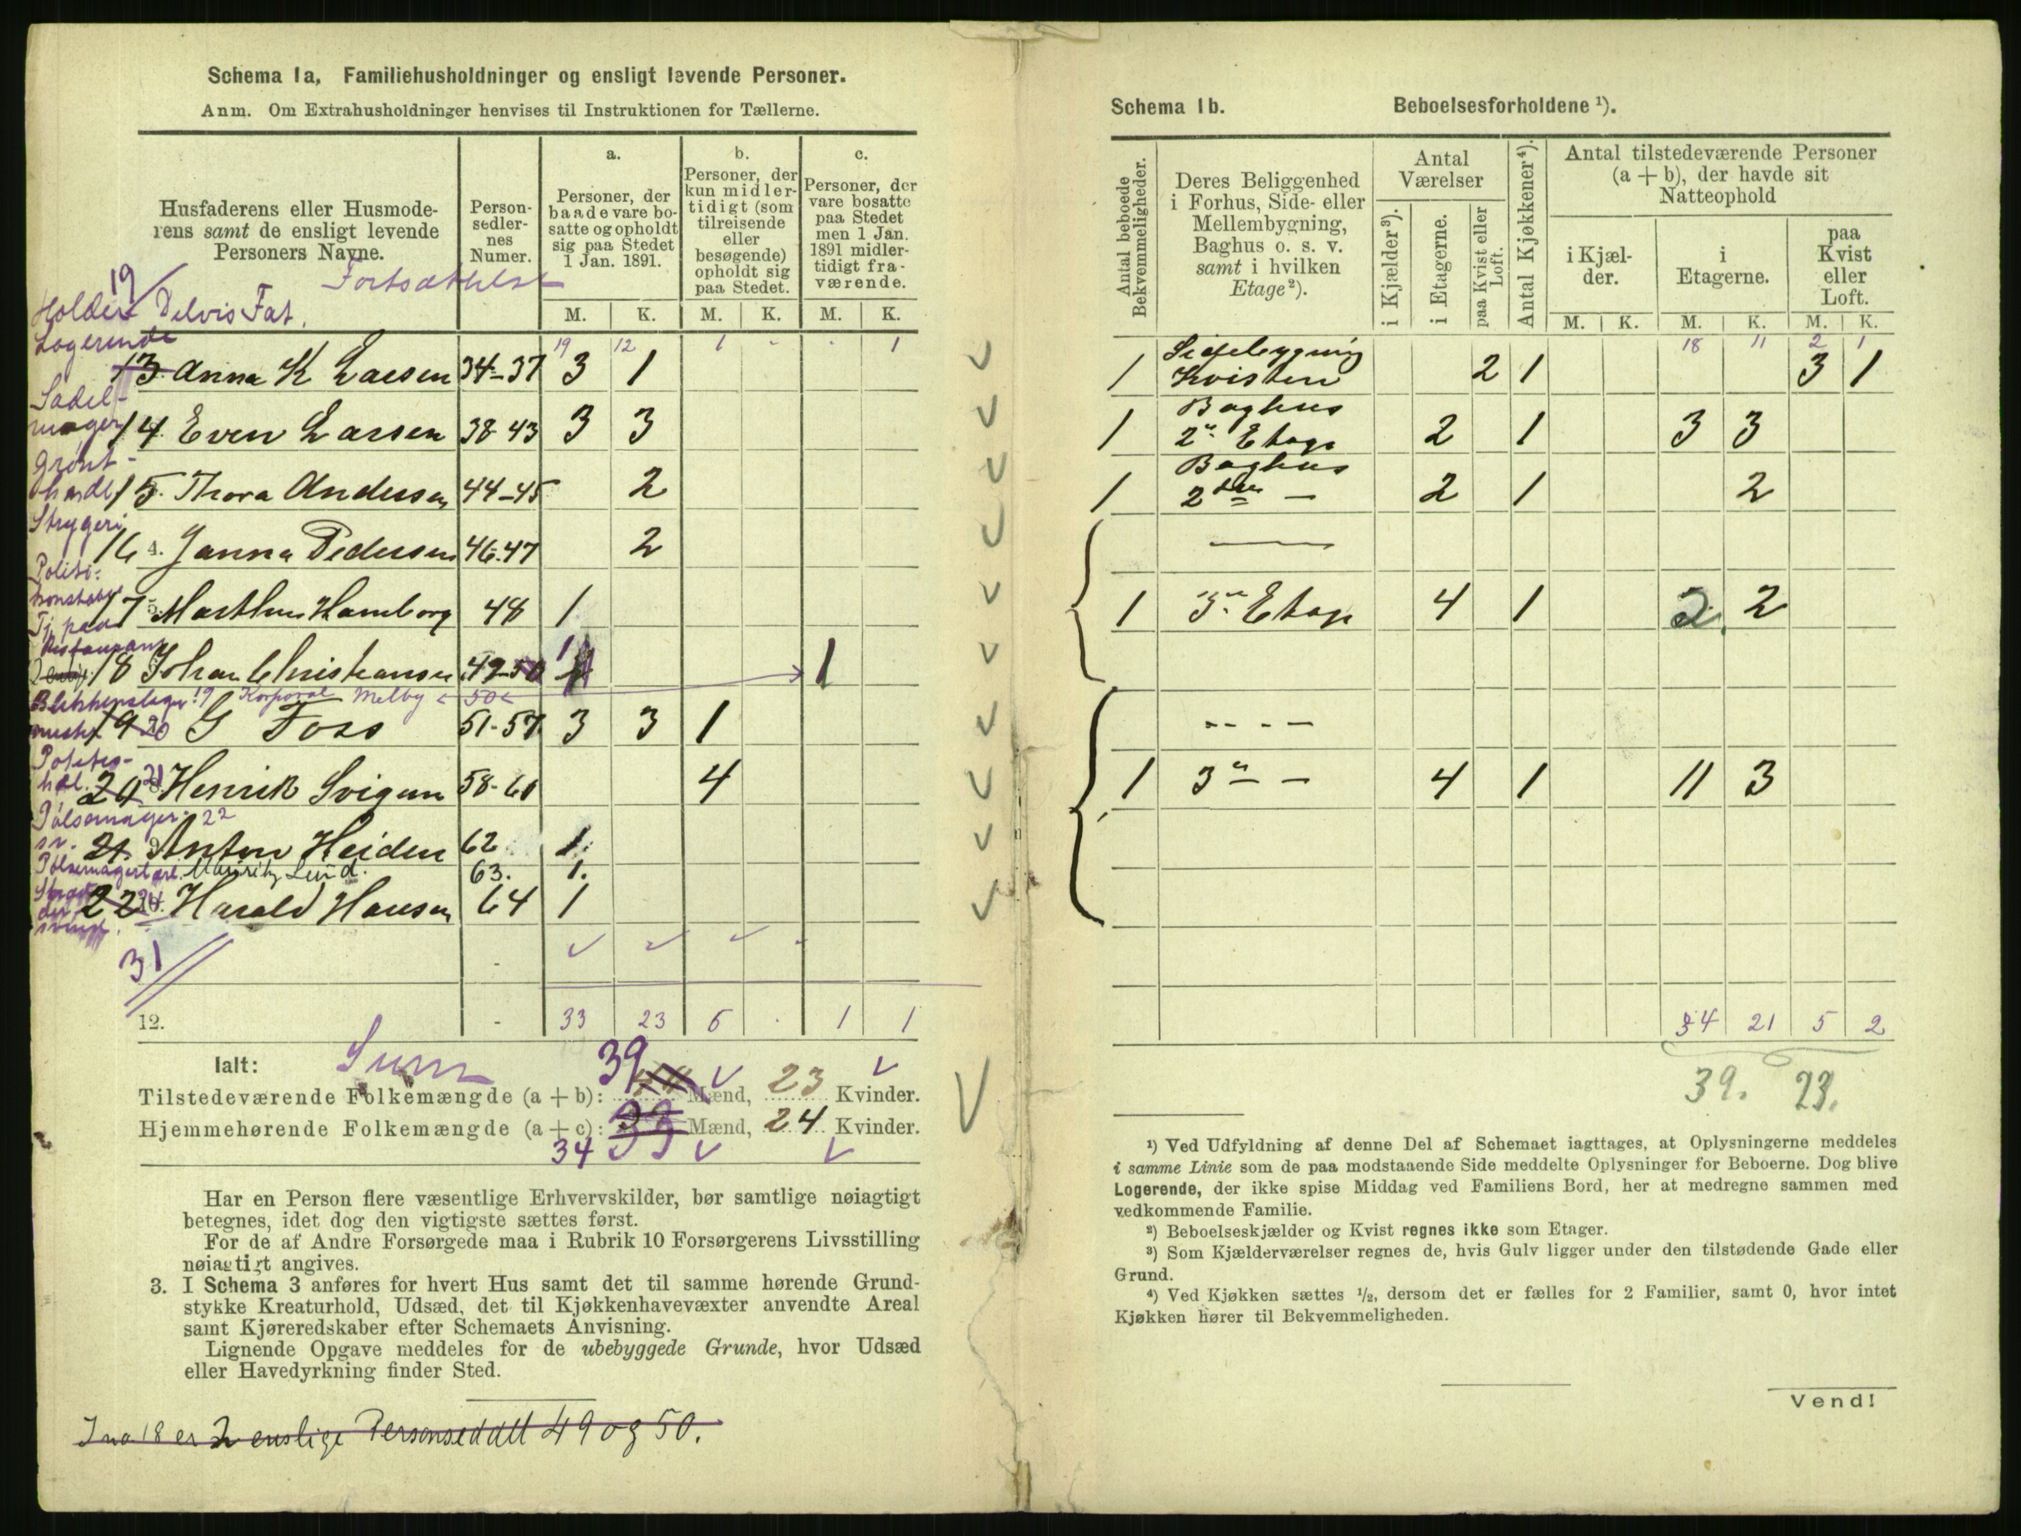 Schema 1a, Familiehusholdninger og ensligt levende Personer.
Anm. Om Extrahusholdninger henvises til Instruktionen for Tællerne.
Husfaderens eller Husmode-
rens samt de ensligt levende
Personers Navne.
Person-
sedler-
nes
Numer.
a.
Personer, der
baade vare bo-
satte og opholdt
sig paa Stedet
1 Jan. 1891.
b.
Personer, der
kun midler-
tidigt (som
tilreisende
eller
besøgende)
opholdt sig
paa Stedet.
c.
Personer, der
vare bosatte
paa Stedet
men 1 Jan.
1891 midler-
tidigt fra-
værende.
M. K. M. K. M. K.
19
Fortsættelse
Holder Logerende Delvis Fat.
19 12 1 - . 1
13 Anna K Larsen 34-37 3 1
Sadel-
mager
14. Even Larsen 38-43 3 3
Grønt-
handl
15. Thora Andersen 44-45 2
Strygeri
16 4. Janna Pedersen 46-47 2
Politi-
konstabel
17 5. Marthin Hamborg 48 1
Tj. paa
Restaurant
18 Johan Christiansen 49-50 1 1
Blikkenslager 19 Korporal Melby 50
19 20 G Foss 51-57 3 3 1
Politi-
20 21 Henrik Svigum 58-61 4
Pølsemager- 22
sv. 21. 9. Anton Heiden 62 1.
Pølsemagerlærl. Mauritz Lund. 63. 1.
22 24 Harald Hansen 64 1
31
12. 33 23 6 . 1 1
Ialt: Sum
Tilstedeværende Folkemængde (a + b): 39 Mænd, 23 Kvinder.
Hjemmehørende Folkemængde (a + c): 33 Mænd, 24 Kvinder.
34
Har en Person flere væsentlige Erhvervskilder, bør samtlige nøiagtigt
betegnes, idet dog den vigtigste sættes først.
For de af Andre Forsørgede maa i Rubrik 10 Forsørgerens Livsstilling
nøiagtigt angives.
3. I Schema 3 anføres for hvert Hus samt det til samme hørende Grund-
stykke Kreaturhold, Udsæd, det til Kjøkkenhavevæxter anvendte Areal
samt Kjøreredskaber efter Schemaets Anvisning.
Lignende Opgave meddeles for de ubebyggede Grunde, hvor Udsæd
eller Havedyrkning finder Sted.
I no 18 er 2 enslige Personseddel 49 og 50.
Schema 1b. Beboelsesforholdene ¹).
Antal beboede
Bekvemmeligheder.
Deres Beliggenhed
i Forhus, Side- eller
Mellembygning,
Baghus o. s. v.
samt i hvilken
Etage ²).
Antal
Værelser
i Kjælder ³).
i Etagerne.
paa Kvist eller
Loft.
Antal Kjøkkener ⁴).
Antal tilstedeværende Personer
(a + b), der havde sit
Natteophold
i Kjæl-
der.
i
Etagerne.
paa
Kvist
eller
Loft.
M. K. M. K. M. K.
18 11 2 1
1 Sidebygning
Kvisten 2 1 3 1
1 Baghus
2n Etage 2 1 3 3
1 Baghus
2den — 2 1 2
—
1 3n Etage 4 1 2. 2
- - - -
1 3n — 4 1 11 3
34 21 5 2
39. 23.
¹) Ved Udfyldning af denne Del af Schemaet iagttages, at Oplysningerne meddeles
i samme Linie som de paa modstaaende Side meddelte Oplysninger for Beboerne. Dog blive
Logerende, der ikke spise Middag ved Familiens Bord, her at medregne sammen med
vedkommende Familie.
²) Beboelseskjælder og Kvist regnes ikke som Etager.
³) Som Kjælderværelser regnes de, hvis Gulv ligger under den tilstødende Gade eller
Grund.
⁴) Ved Kjøkken sættes ¹/₂, dersom det er fælles for 2 Familier, samt 0, hvor intet
Kjøkken hører til Bekvemmeligheden.
Vend!